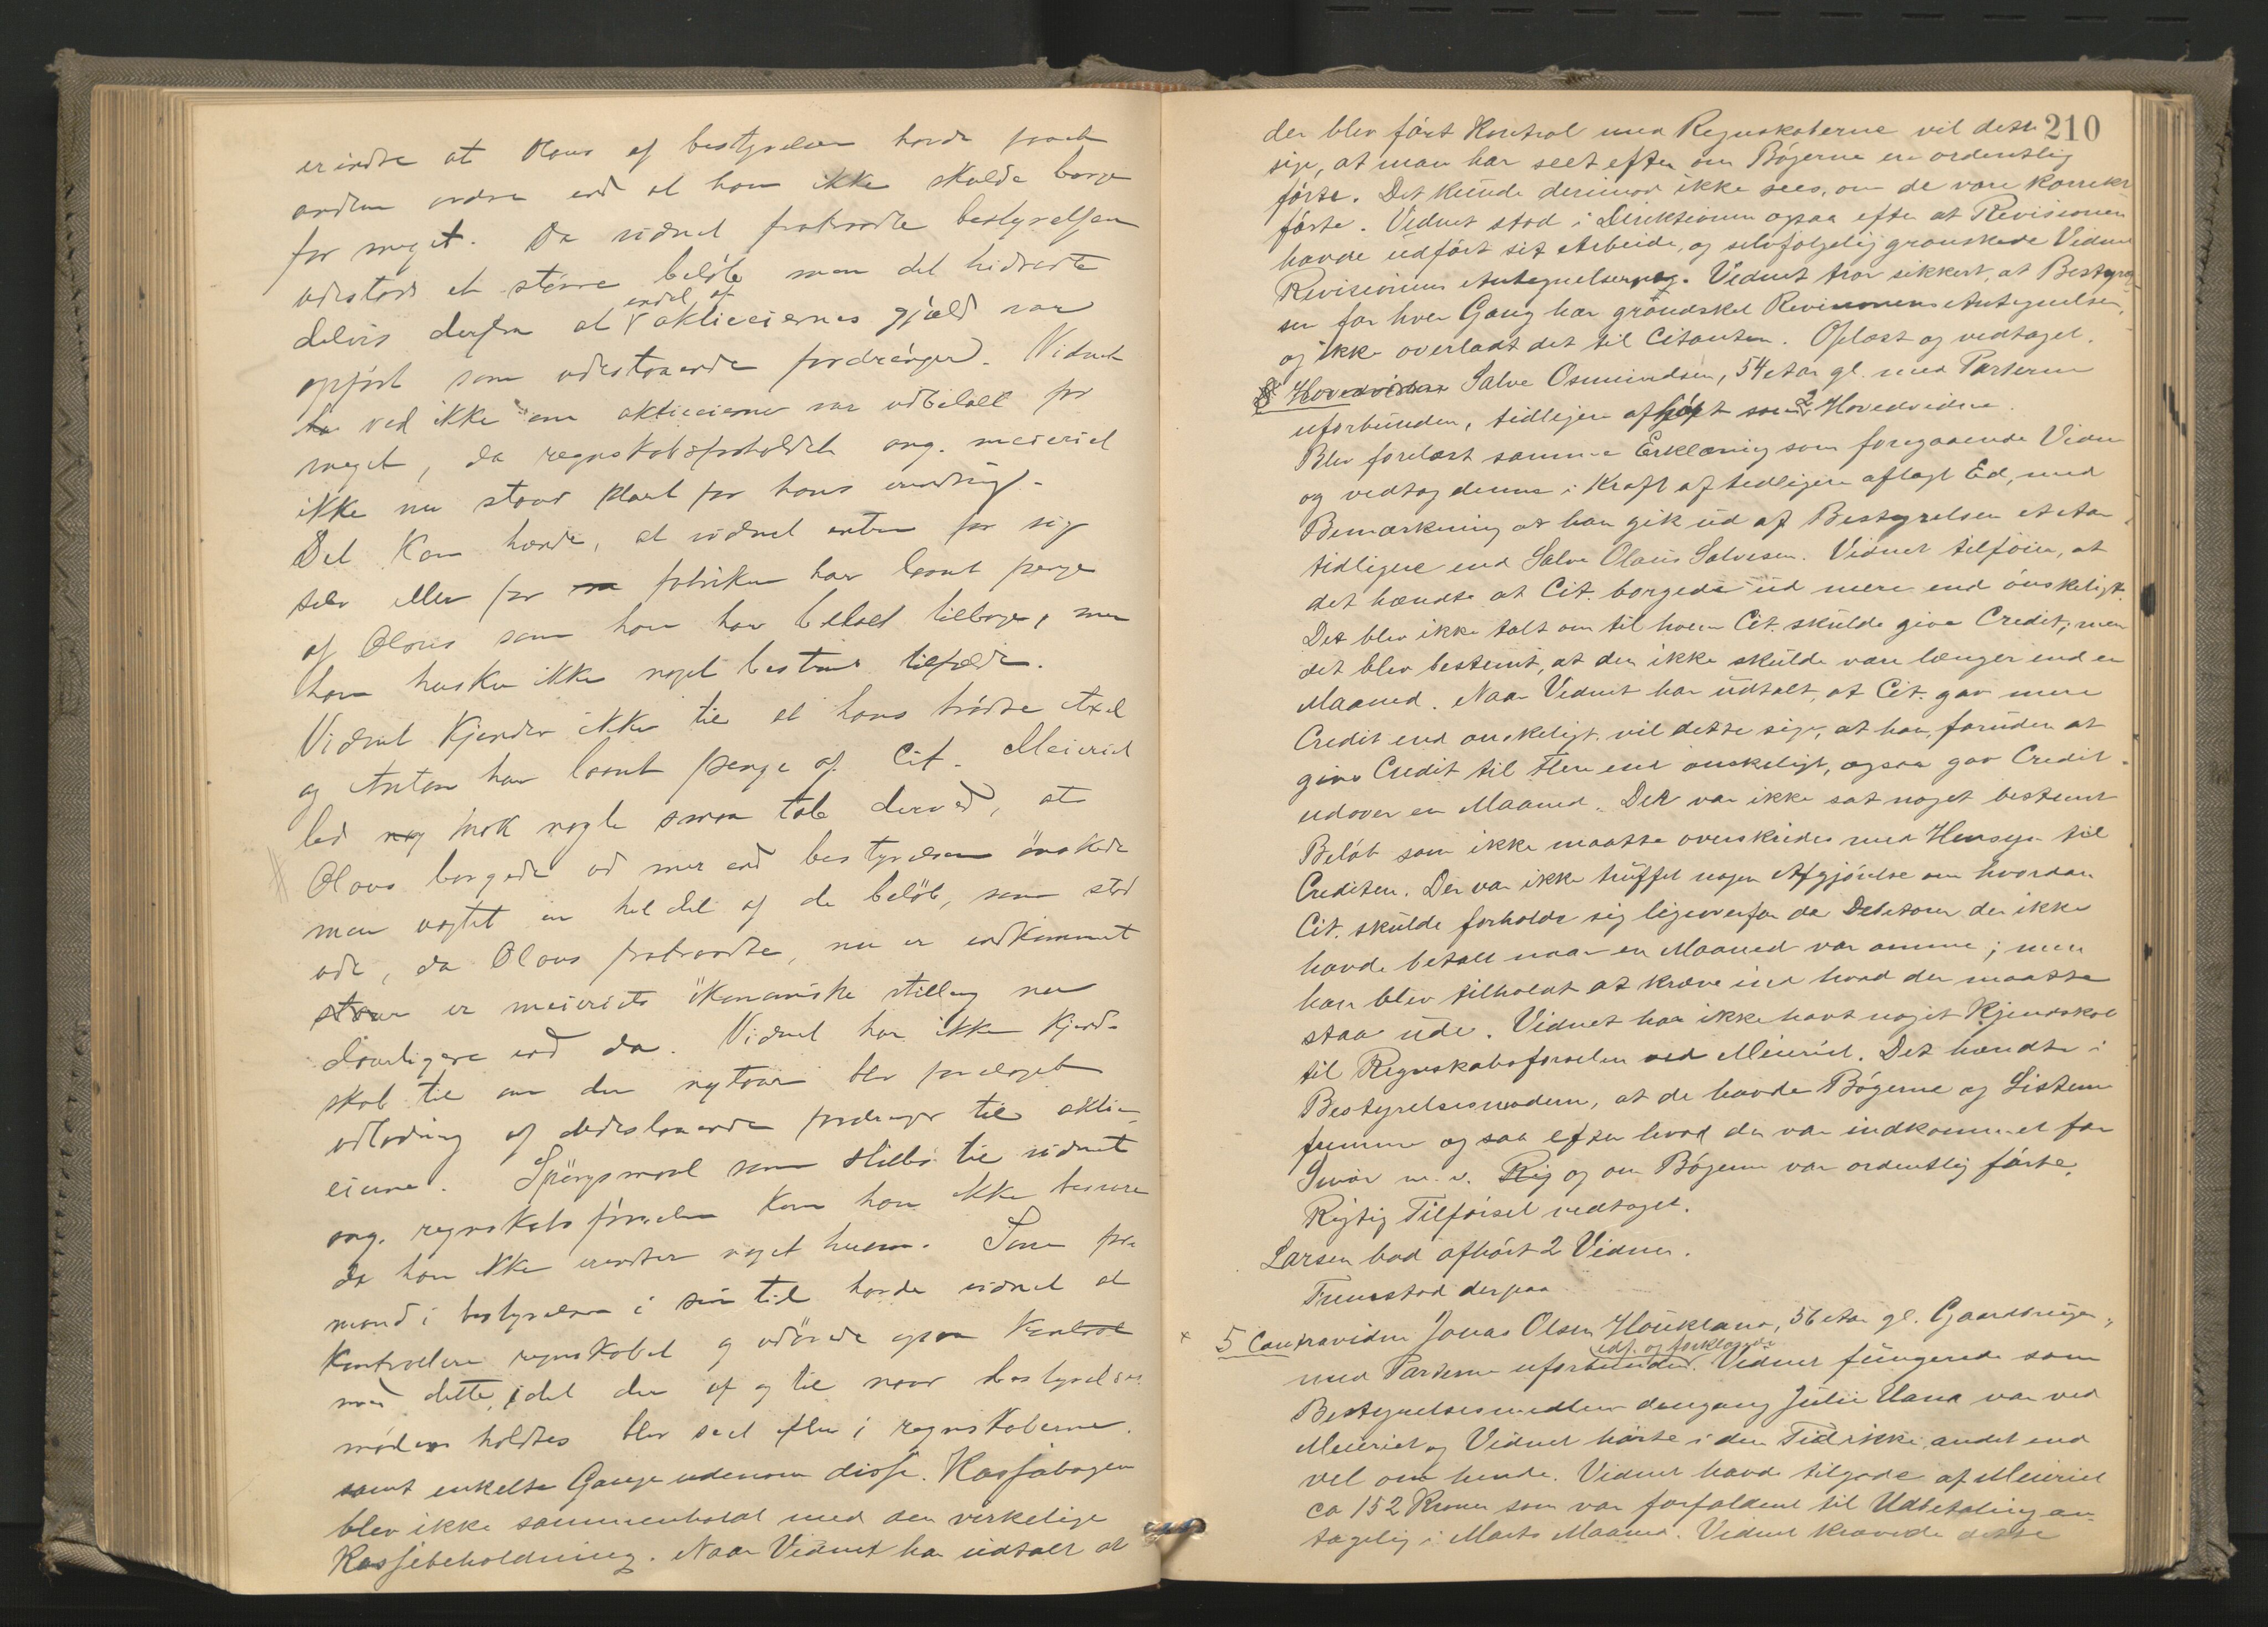 erindre at Olaus af bestyrelsen havde faaet
anden ordre end at han ikke skulde borge
for meget. Da vidnet fratraadte bestyrelsen
udestod et större belöb men det hidrørte
delvis derfra at endel af aktieeiernes gjæld var
opfört som udestaaende fordringer. Vidnet
ved ikke om aktieeierne var udbetalt for
meget, da regnskabsforholdet ang. meieriet
ikke nu staar klart for hans erindring.
Det kan hænde, at vidnet enten for sig
selv eller for fabriken har laant penge
af Olaus som han har betalt tilbage, men
han husker ikke noget bestemt tilfælde.
Vidnet kjender ikke til at hans brødre Axel
og Anton har laant penge af Cit. Meieriet
led nok nogle smaa tab derved, at
Olaus borgede ud mer end bestyrelsen önskede
men en hel del af de belöb, som stod
ude, da Olaus fratraadte, nu er indkommet
er meieriets ökonomiske stilling nu
daarligere end da. Vidnet har ikke kjend-
skab til om der nytaar blev foretaget
udlodning af udestaaende fordringer til aktie-
eierne. Spörgsmaal som stilles til vidnet
ang. regnskabsförselen kan han ikke besvare
da han ikke erindrer noget herom. Som for-
mand i bestyrelsen i sin tid havde vidnet at
kontrollere regnskabet og udövede ogsaa Kontrol
med dette, idet der af og til naar bestyrelses
møder holdtes blev seet efter i regnskaberne.
samt enkelte Gange udenom disse. Kassabogen
blev ikke sammenholdt med den virkelige
Kassebeholdning. Naar Vidnet har udtalt at
210
der blev fört Kontrol med Regnskaberne vil dette
sige, at man har seet efter om Bögerne er ordentlig
förte. Det kunde derimod ikke sees, om de vare korrekt
förte. Vidnet stod i Direktionen ogsaa efter at Revisionen
havde udfört sit Arbeide, og selvfolgelig granskede Vidnet
Revisionens Antegnelser. Vidnet tror sikkert, at Bestyrel-
sen for hver Gang har grandsket Revisionens Antegnelser,
og ikke overladt det til Citanten. Oplæst og vedtaget.
Hovedvidne Salve Osmundsen, 54 Aar gl. med Parterne
uforbunden, tidligere afhört som 2 Hovedvidne.
Blev forelæst samme Erklæring som foregaaende Vidne
og vedtog denne i Kraft af tidligere aflagt Ed, med
Bemærkning at han gik ud af Bestyrelsen et Aar
tidligere end Salve Olaus Salvesen. Vidnet tilföier, at
det hændte at Cit. borgede ud mere end önskeligt.
Det blev ikke talt om til hvem Cit. skulde give Credit; men
det blev bestemt, at den ikke skulde vare længer end en
Maaned. Naar Vidnet har udtalt, at Cit. gav mere
Credit end onskeligt, vil dette sige, at han, foruden at
give Credit til flere end önskeligt, ogsaa gav Credit
udover en Maaned. Det var ikke sat noget bestemt
Belöb som ikke maatte overskrides med Hensyn til
Crediten. Der var ikke truffet nogen Afgjörelse om hvordan
Cit. skulde forholde sig ligeoverfor de Debitorer der ikke
havde betalt naar en Maaned var omme; men
han blev tilholdt at kræve ind hvad der maatte
staa ude. Vidnet har ikke havt noget Kjendskab
til Regnskabsforselen ved Meieriet. Det hændte i
Bestyrelsesmodene, at de havde Bögerne og Listerne
fremme og saa efter hvad der var indkommet for
Smör m. v. og om Bögerne var ordentlig förte.
Rigtig Tilförsel vedtaget.
Larsen bad afhört 2 Vidner.
Fremstod derpaa
5 Contravidne Jonas Olsen Haukland, 56 Aar gl. Gaardbruger,
med Parterne uforbunden. edf. og forklarede Vidnet fungerede som
Bestyrelsesmedlem dengang Julie Uand var ved
Meieriet og Vidnet hörte i den Tid ikke andet end
vel om hende. Vidnet havde tilgode af Meieriet
ca 152 Kroner som var forfaldent til Udbetaling an-
tagelig i Marts Maaned. Vidnet krævede dette